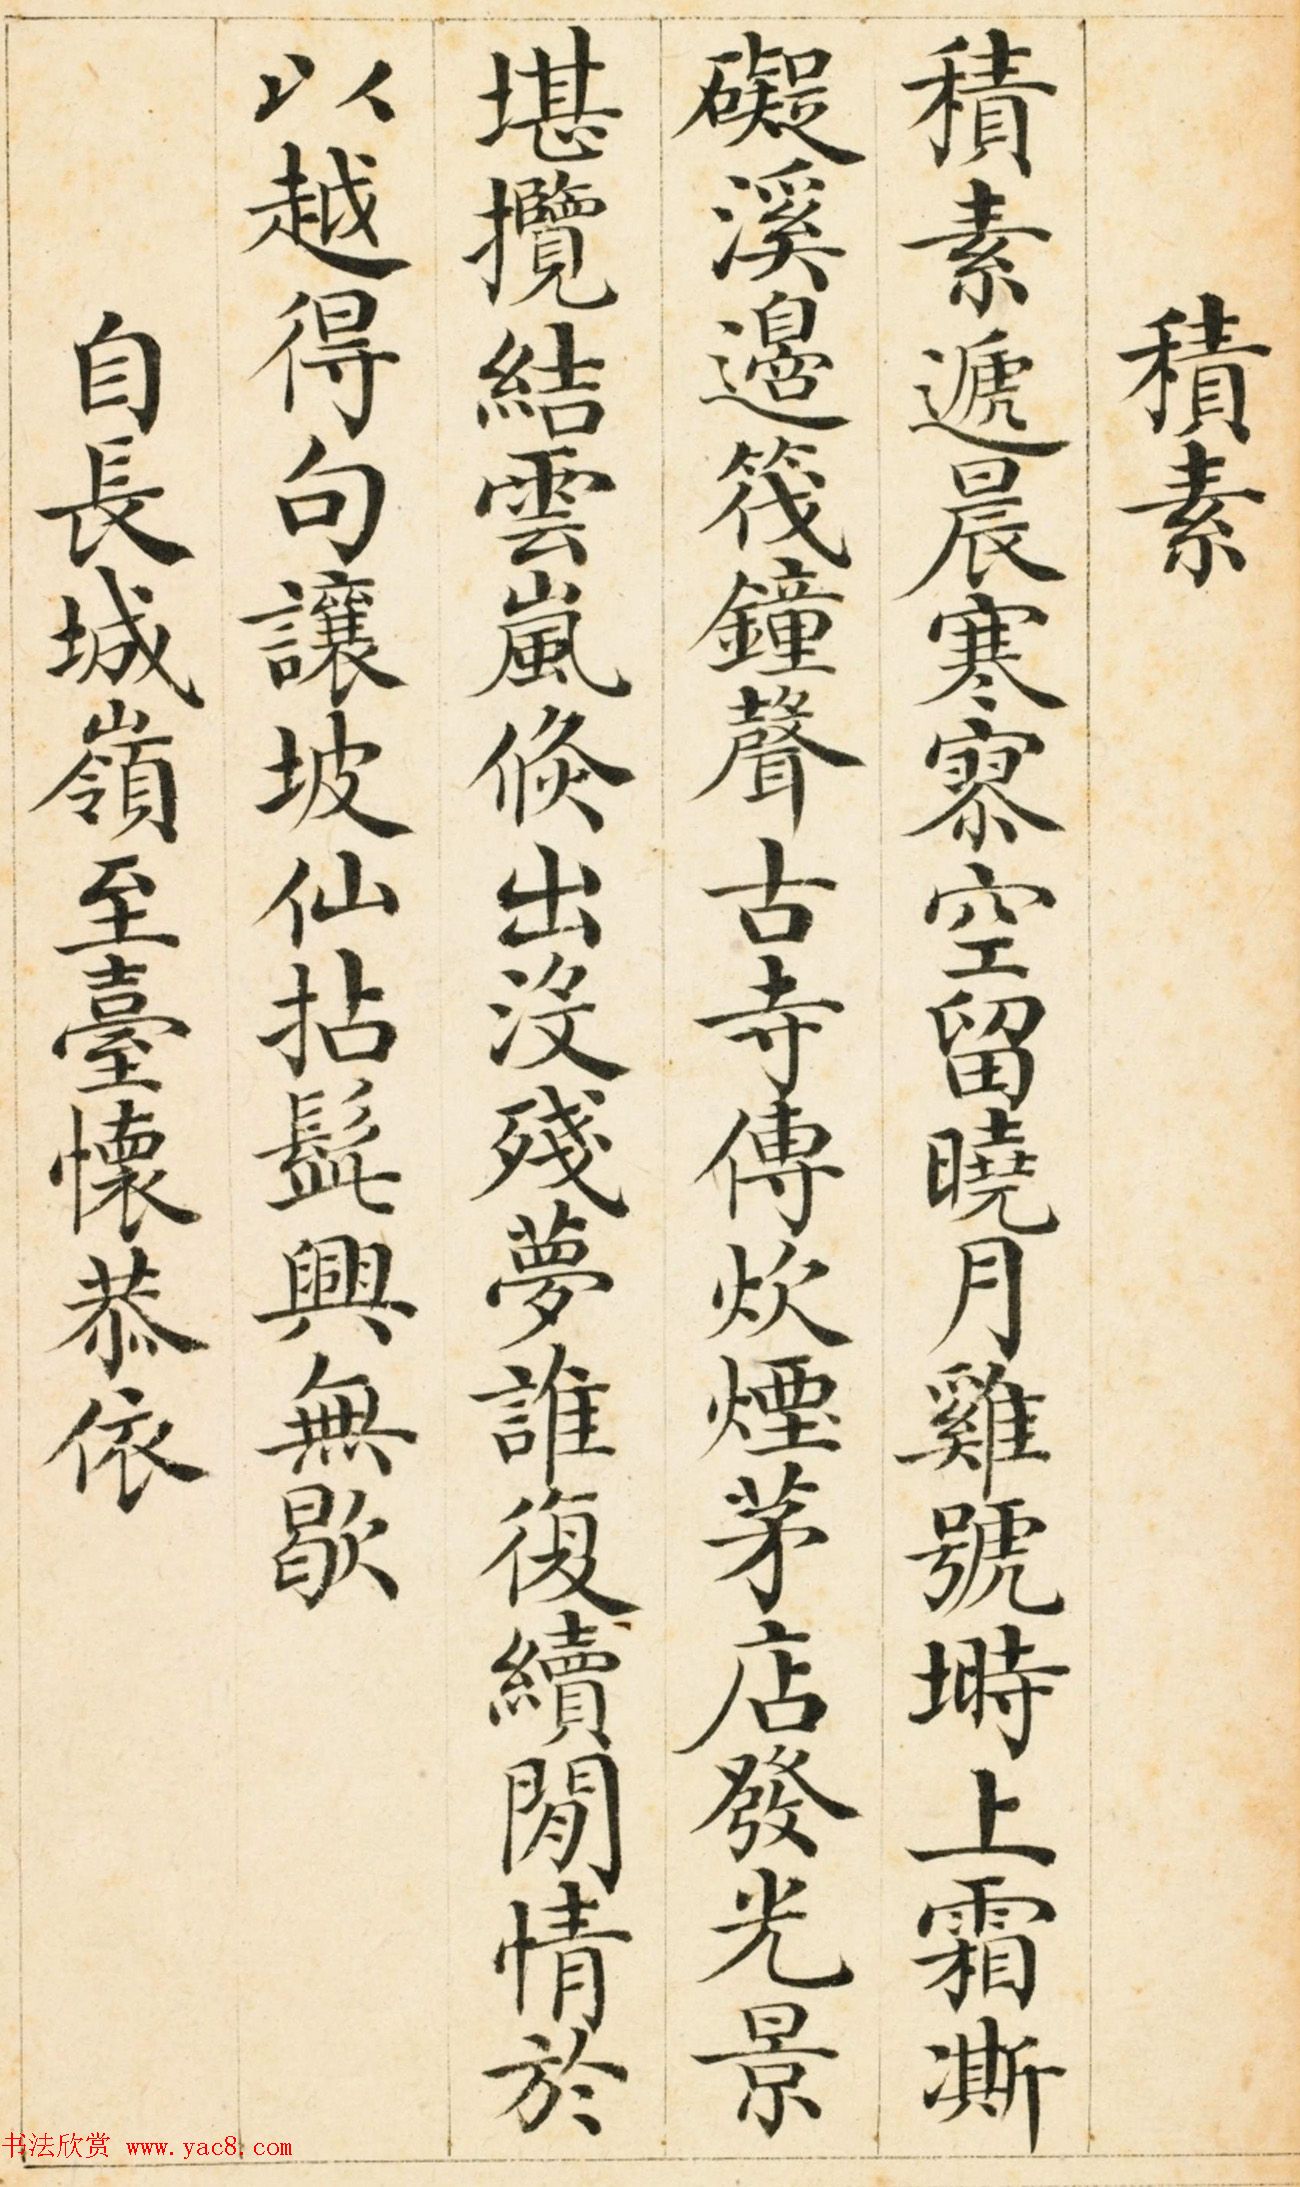 積素
積素遞晨寒寥空留曉月雞號塒上霜澌
礙溪邊筏鐘聲古寺傳炊煙茅店發光景
堪攬結雲嵐倐出沒殘夢誰復續閒情於
以越得句讓坡仙拈髭興無歇
自長城嶺至臺懷恭依
书法欣赏 www.yac8.com